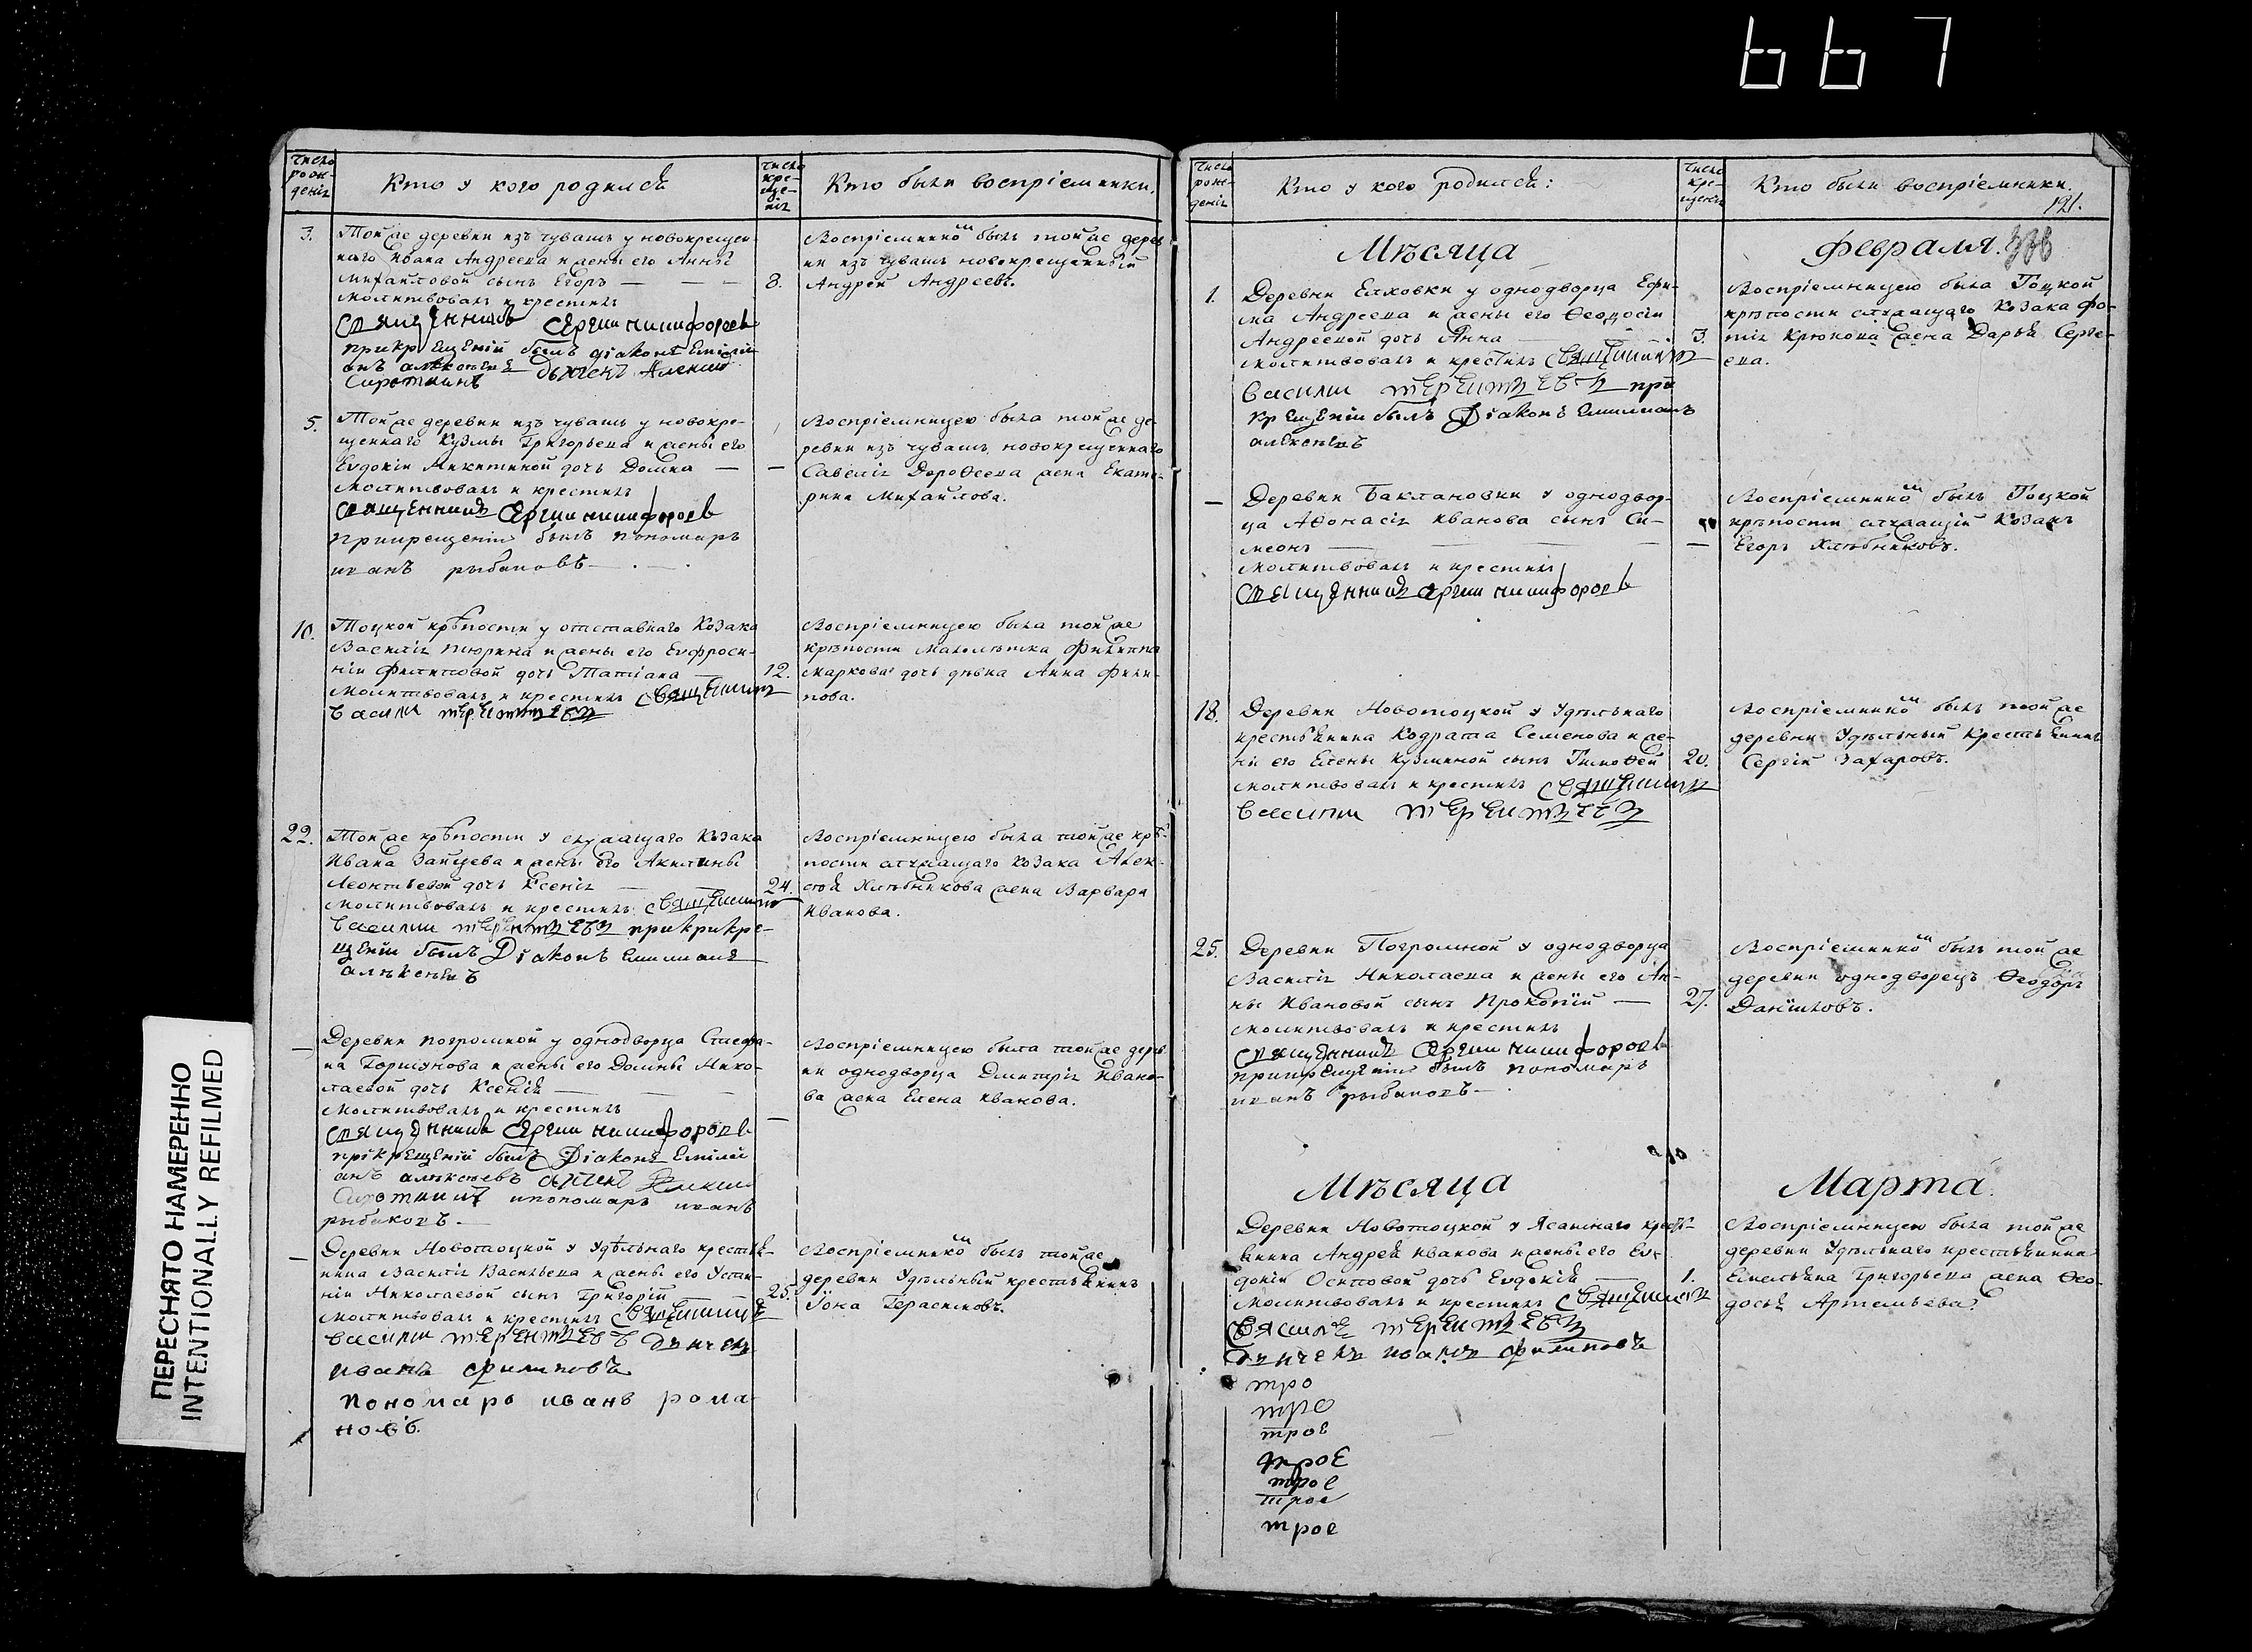 667
число рож-
денія
Кто у кого родился
число
кре-
ще-
нія
Кто были воспріемники.
3.
Той же деревни изъ чувашъ у новокрещен-
наго Ивана Андреева и жены его Анны
Михайловой сынъ Егоръ — — —
8.
молитвовалъ и крестилъ
священникъ Сергии никифоровъ
прикрещении былъ діаконъ Емилли
анъ алексеевъ дьячекъ Алексий
Сироткинъ
Воспріемникомъ былъ той же дерев
ни изъ чувашъ новокрещенный
Андрей Андреевъ.
5.
Той же деревни изъ чувашъ у новокре-
щеннаго Кузмы Григорьева и жены его
Евдокіи Никитиной дочь Домна —
—
молитвовалъ и крестилъ
священникъ Сергии никифоровъ
прикрещении былъ пономарь
иванъ рыбаковъ
Воспріемницею была той же де-
ревни изъ чувашъ новокрещеннаго
Савелія Дорофеева жена Екате-
рина Михайлова.
10.
Тоцкой крѣпости у отставнаго Козака
Василія Тюрина и жены его Евфроси-
ніи Филиповой дочь Татіана —
12.
молитвовалъ и крестилъ священникъ
василий терентьевъ
Воспріемницею была той же
крѣпости малолѣтка Филиппа
Маркова дочь дѣвка Анна Фили-
пова.
22.
Той же крѣпости у служащаго Козака
Ивана Зайцева и жены его Акилины
Леонтьевой дочь Ксенія —
24.
молитвовалъ и крестилъ священникъ
василии терентьевъ прикрикре-
щеніи былъ Діаконъ емилианъ
алѣксѣевъ
Воспріемницею была той же крѣ-
пости служащаго Козака Алек-
сѣя Хлѣбникова жена Варвара
Иванова.
—
Деревни Погромной у однодворца Стефа-
на Горшунова и жены его Домны Нико-
лаевой дочь Ксенія —
—
молитвовалъ и крестилъ
священникъ Сергии никифоровъ
прикрещеніи былъ Діаконъ Емілли
анъ алѣксѣевъ дячекъ Алексий
Сироткинъ ипономарь иванъ
рыбаковъ
Воспріемницею была той же дерев
ни однодворца Дмитрія Ивано-
ва жена Елена Иванова.
—
Деревни Новотоцкой у Удѣльнаго крестья-
нина Василія Васильева и жены его Усти-
ніи Николаевой сынъ Григорій
25.
молитвовалъ и крестилъ священникъ
василии терентьевъ дьячекъ
иванъ филиповъ
пономарь иванъ рома-
новъ.
Воспріемникомъ былъ той же
деревни Удѣльный крестьянинъ
Іона Герасимовъ.
число
рож-
денія
Кто у кого родился:
число
кре-
щенія
Кто были воспріемники.
191.
Мѣсяца
Февраля.
336
1.
Деревни Елховки у однодворца Ефи-
ма Андреева и жены его Ѳеодосіи
Андреевой дочь Анна
3.
молитвовалъ и крестилъ священникъ
василии терентьевъ при
крещеніи былъ Діаконъ емилианъ
алексѣевъ
Воспріемницею была Тоцкой
крѣпости служащаго Козака Фо-
тія Крюкова жена Дарья Серге-
ева.
—
Деревни Баклановки у однодвор-
ца Афонасія Иванова сынъ Си-
меонъ — — —
—
молитвовалъ и крестилъ
священникъ Сергии никифоровъ
Воспріемникомъ былъ Тоцкой
крѣпости служащій Козакъ
Егоръ Хлѣбниковъ.
18.
Деревни Новотоцкой у Удѣльнаго
крестьянина Кодрата Семенова и же-
ны его Елены Кузминой сынъ Тимофей
20.
молитвовалъ и крестилъ священникъ
василии терентьевъ
Воспріемникомъ былъ той же
деревни Удѣльный Крестьянинъ
Сергій Захаровъ.
25.
Деревни Погромной у однодворца
Василія Николаева и жены его Ан-
ны Ивановой сынъ Прокопій —
27.
молитвовалъ и крестилъ
священникъ Сергии никифоровъ
прикрещеніи былъ пономарь
иванъ рыбаковъ
Воспріемникомъ былъ той же
деревни однодворецъ Ѳеодоръ
Даниловъ.
Мѣсяца
Марта
Деревни Новотоцкой у Ясашнаго кресть-
янина Андрея Иванова и жены его Ев-
докіи Осиповой дочь Евдокія —
1.
молитвовалъ и крестилъ священникъ
василе терентьевъ
дьячекъ иванъ филиповъ
Воспріемницею была той же
деревни Удѣльнаго крестьянина
Емельяна Григорьева жена Ѳео-
досья Артемьева.
тро
тре
трое
трое
трое
трое
трое
ПЕРЕСНЯТО НАМЕРЕННО
INTENTIONALLY REFILMED